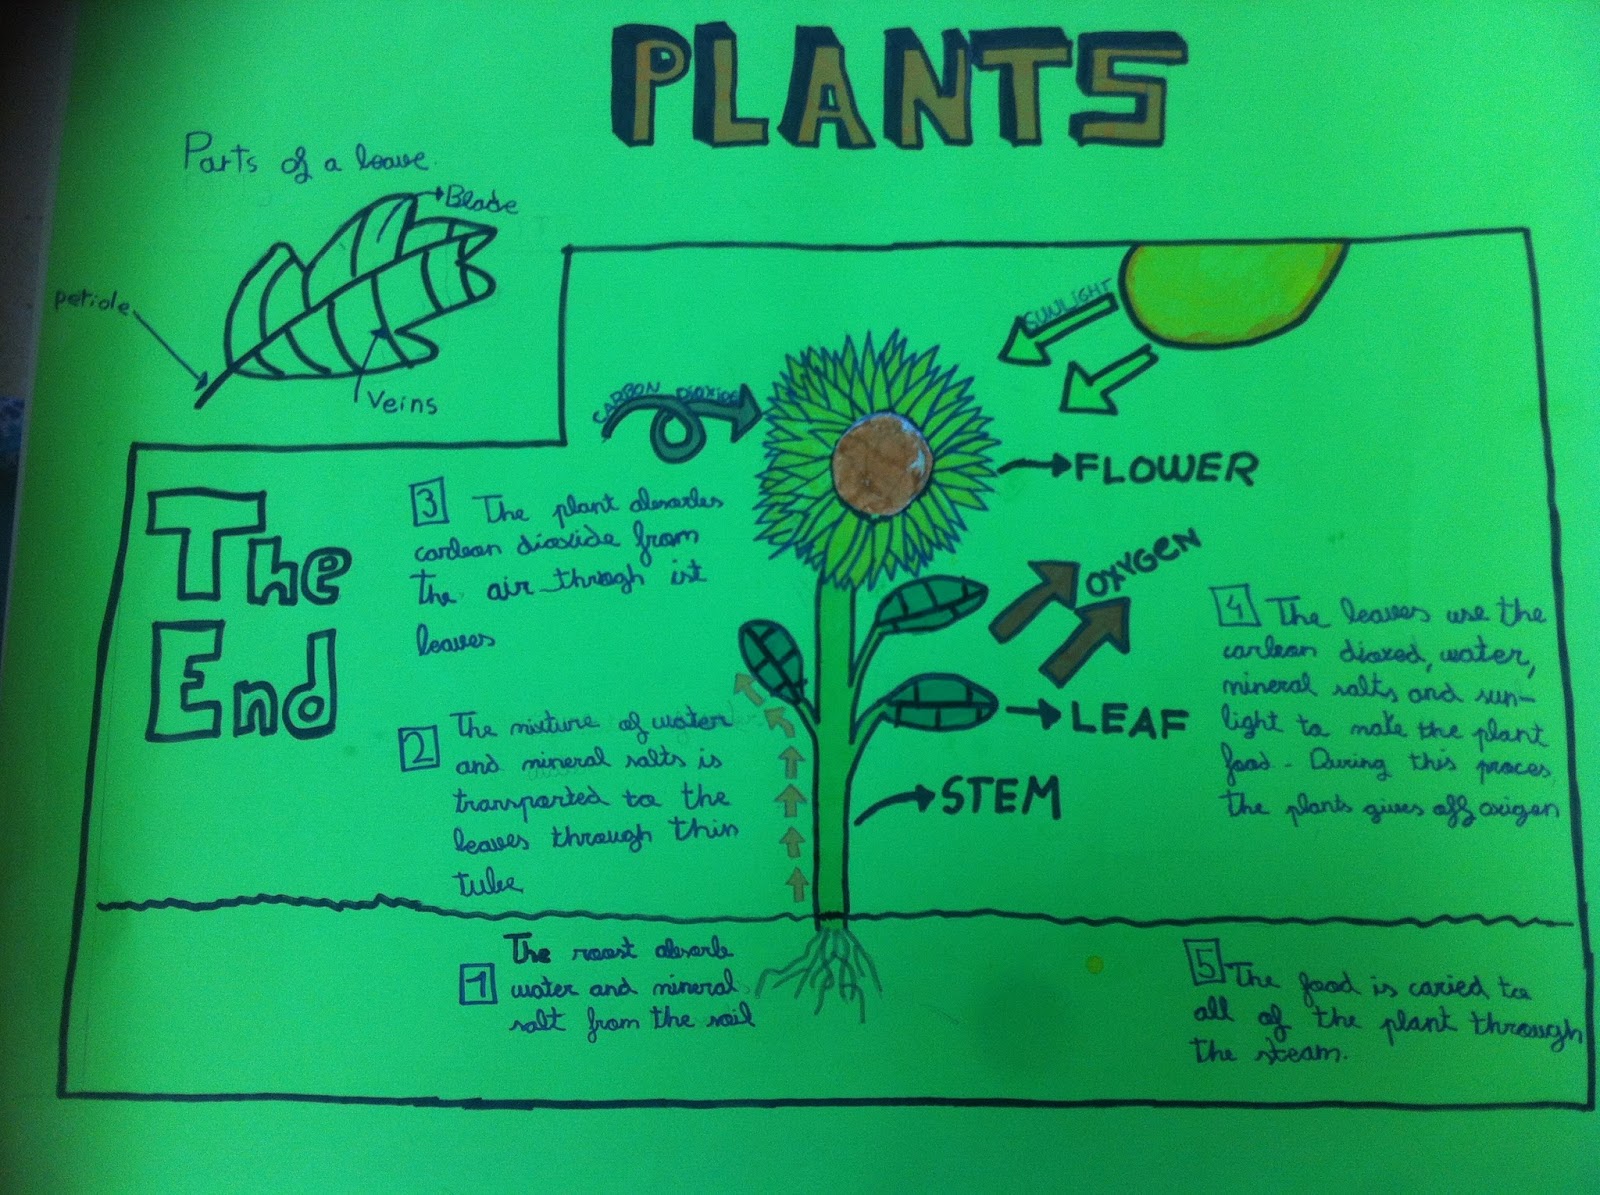 PLANTS
Parts of a leave.
Blade
petiole
Veins
SUNLIGHT
CARBON DIOXIDE
FLOWER
The
End
3 The plant absorbes
carbon dioxide from
the air through ist
leaves
OXYGEN
4 The leaves use the
carbon dioxed, water,
mineral salts and sun-
light to make the plant
food - During this proces
the plants gives off oxigen
LEAF
2 The mixture of water
and mineral salts is
transported to the
leaves through thin
tube
STEM
1 The roost absorb
water and mineral
salt from the soil
5 The food is caried to
all of the plant through
the steam.